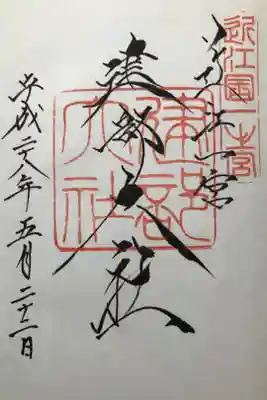 近江国一宮
近江一宮
建部大社
建部大社
平成二十八年五月二十二日